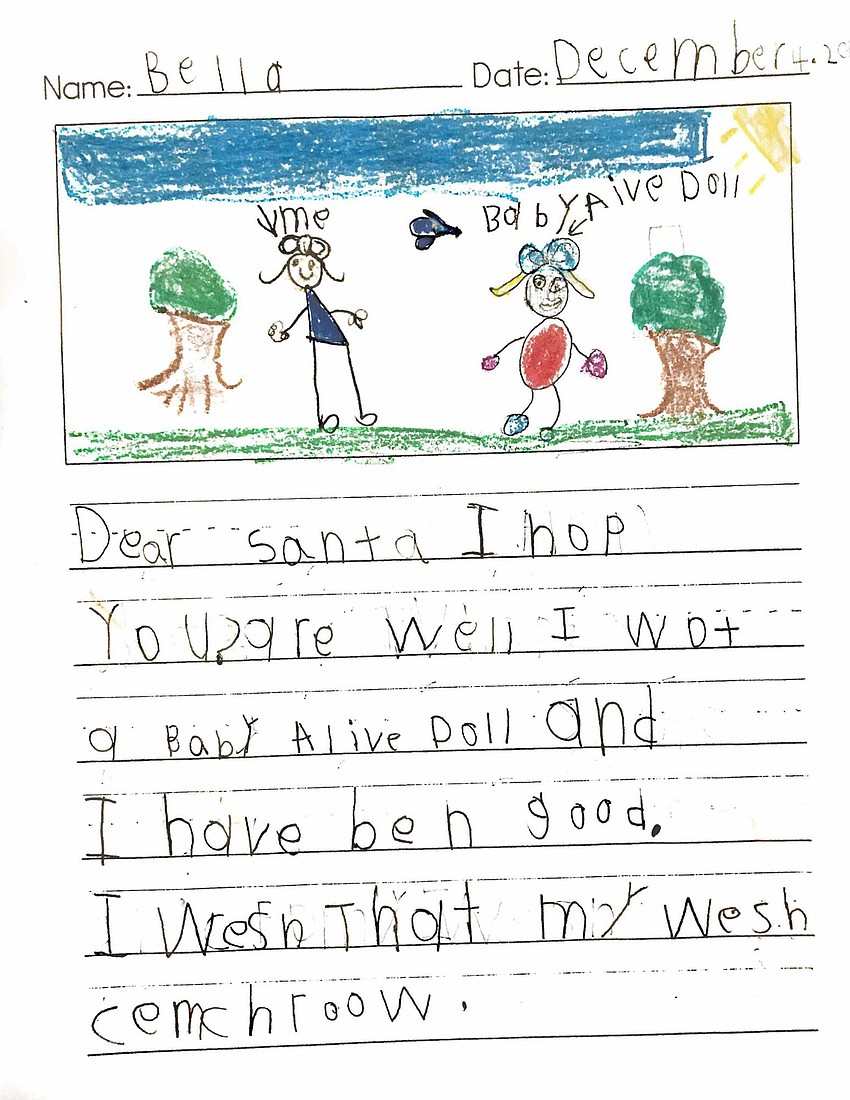 Name: Bella Date: December 4. 20
me
Baby Aive Doll
Dear santa I hop
You?are Well I wot
a Baby Alive Doll and
I have ben good.
I Wesh That my Wesh
cemchroow.